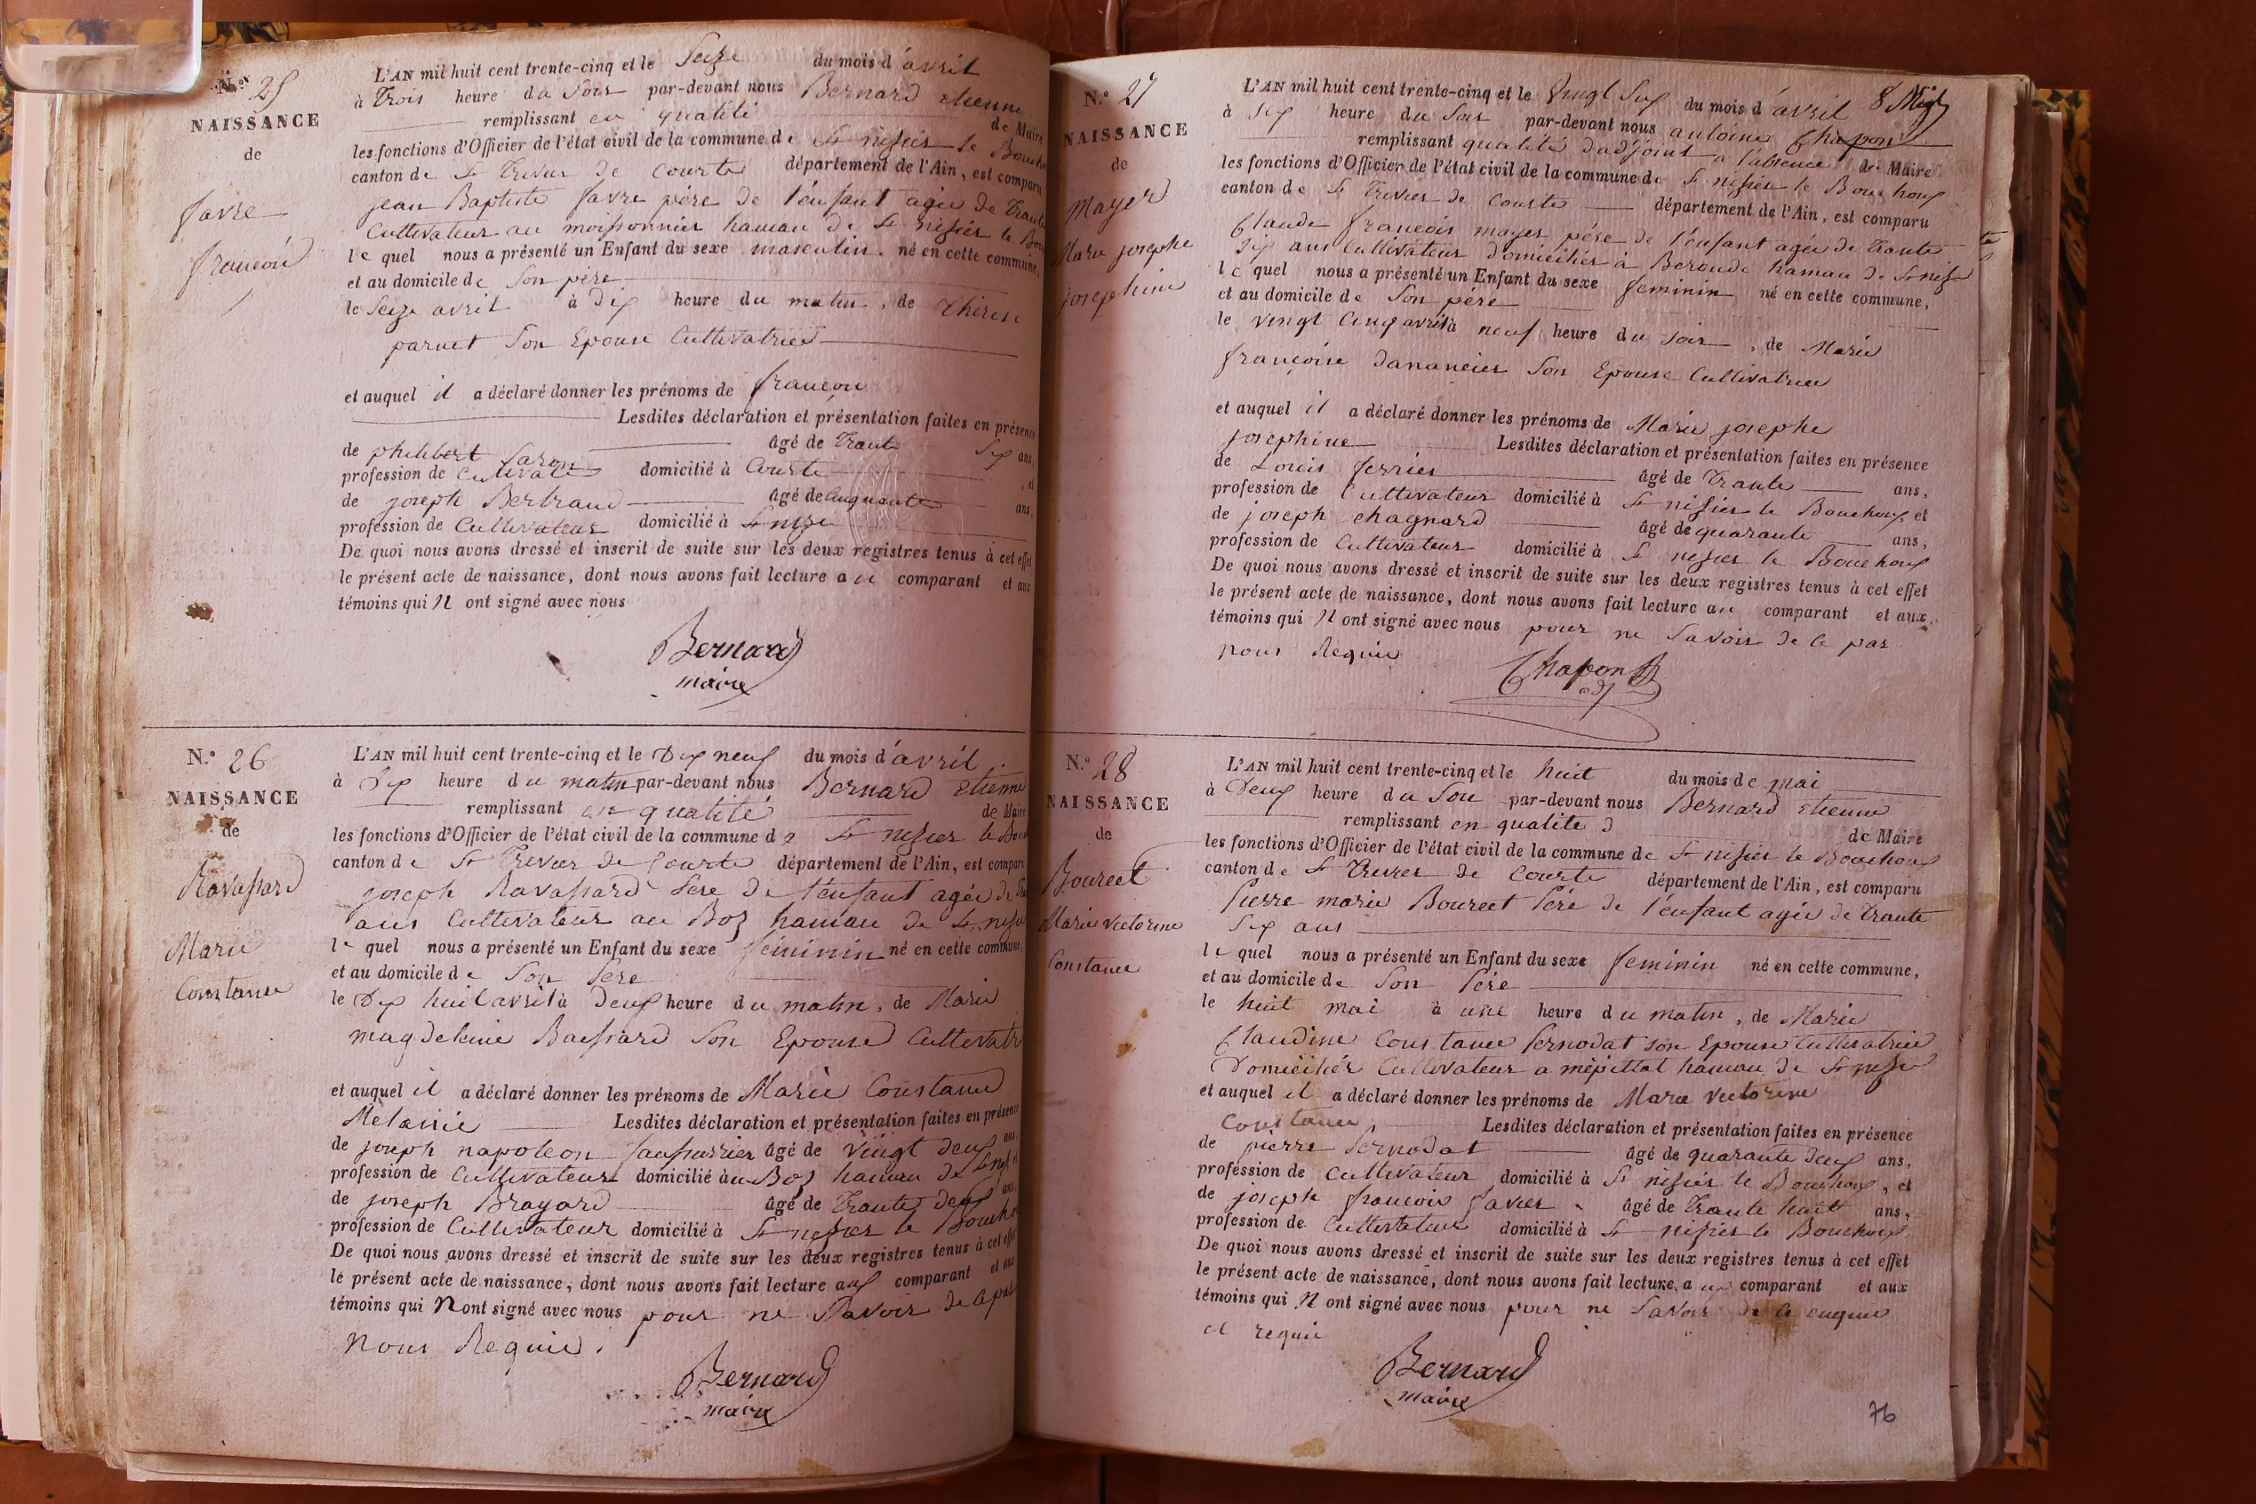 N.° 25
NAISSANCE
de
favre
francois
L'AN mil huit cent trente-cinq et le Seize du mois d'avril
à Trois heure du Soir par-devant nous Bernard etienne
remplissant en qualité de Maire
les fonctions d'Officier de l'état civil de la commune de St nisier le Bouchou
canton de St Trivier de Courte département de l'Ain, est comparu
jean Baptiste favre pére de l'énfant agée de Trante
Cultivateur au moissonnier hamau de St nisier le Bou
le quel nous a présenté un Enfant du sexe masculin né en cette commune,
et au domicile de Son pére
le Seize avril à Dix heure du matin, de thérese
parnet Son Epouse Cultivatrice
et auquel il a déclaré donner les prénoms de francois
Lesdites déclaration et présentation faites en présence
de philibert Saron âgé de Trante Six ans,
profession de cultivat domicilié à Courte, et
de joseph Bertrand âgé de Cinquante ans,
profession de Cultivateur domicilié à St nizie
De quoi nous avons dressé et inscrit de suite sur les deux registres tenus à cet effet
le présent acte de naissance, dont nous avons fait lecture au comparant et aux
témoins qui N ont signé avec nous
Bernard
maire
N.° 26
NAISSANCE
de
Ravassard
Marie
Constance
L'AN mil huit cent trente-cinq et le Dix neuf du mois d'avril
à Dix heure du matin par-devant nous Bernard Etienne
remplissant en qualité de Maire
les fonctions d'Officier de l'état civil de la commune de St nisier le Bou
canton de St Trivier de Courte département de l'Ain, est comparu
joseph Ravassard Pere de l'énfant agée de
ans Cultivateur au Boz hamau de St nisie
le quel nous a présenté un Enfant du sexe féminin né en cette commune,
et au domicile de Son Pere
le Dix huit avril à Deux heure du matin, de Marie
magdeleine Bassard Son Epouse Cultivatr
et auquel il a déclaré donner les prénoms de Marie Constance
Mélanie Lesdites déclaration et présentation faites en présence
de joseph napoleon âgé de Vingt Deux ans,
profession de Cultivateur domicilié au Boz hamau de St nisi
de joseph Brayard âgé de Trante Deux ans,
profession de Cultivateur domicilié à St nisier le Boucho
De quoi nous avons dressé et inscrit de suite sur les deux registres tenus à cet effet
le présent acte de naissance, dont nous avons fait lecture aux comparant et aux
témoins qui N ont signé avec nous pour ne Savoir de ce par
Nous Requie.
Bernard
maire
N.° 27
NAISSANCE
de
Mayer
Marie josephe
josephine
L'AN mil huit cent trente-cinq et le Vingt Six du mois d'avril
à Six heure du Soir par-devant nous antoine Chapon
remplissant qualité d'adjoint a l'absence de Maire
les fonctions d'Officier de l'état civil de la commune de St nisier le Bouchoux
canton de St Trivier de Courte département de l'Ain, est comparu
Claude francois mayer pére de l'énfant agée de trante
Six ans Cultivateur domicilier à Beroude hamau de St nizi
le quel nous a présenté un Enfant du sexe feminin né en cette commune,
et au domicile de Son pére
le vingt Cinq avril à neuf heure du Soir, de Marie
françoise dananeier Son Epouse Cultivatrice
et auquel il a déclaré donner les prénoms de Marie josephe
josephine Lesdites déclaration et présentation faites en présence
de Louis ferrier âgé de Trante ans,
profession de Cultivateur domicilié à St nisier le Bouchoux, et
de joseph chagnard âgé de quarante ans,
profession de Cultivateur domicilié à St nisier le Bouchoux
De quoi nous avons dressé et inscrit de suite sur les deux registres tenus à cet effet
le présent acte de naissance, dont nous avons fait lecture au comparant et aux
témoins qui N ont signé avec nous pour ne Savoir de ce par
nous Requie
Chapon
adj
N.° 28
NAISSANCE
de
Bourcet
Marie Victorine
Constance
L'AN mil huit cent trente-cinq et le huit du mois de mai
à Deux heure du Soir par-devant nous Bernard Etienne
remplissant en qualite d de Maire
les fonctions d'Officier de l'état civil de la commune de St nisier le Bouchoux
canton de St Trivier de Courte département de l'Ain, est comparu
Pierre marie Bourcet Pére de l'énfant agée de Trante
Six ans
le quel nous a présenté un Enfant du sexe feminin né en cette commune,
et au domicile de Son Pére
le huit mai à une heure du matin, de Marie
Claudine Constance Pernodat son Epouse Cultivatrice
Domicilier Cultivateur a mépittat hamau de St nisie
et auquel il a déclaré donner les prénoms de Marie Victorine
Constance Lesdites déclaration et présentation faites en présence
de pierre Pernodat âgé de quarante deux ans,
profession de Cultivateur domicilié à St nisier le Bouchoux, et
de joseph francois favier âgé de Trante huit ans,
profession de Cultivateur domicilié à St nisier le Bouchoux
De quoi nous avons dressé et inscrit de suite sur les deux registres tenus à cet effet
le présent acte de naissance, dont nous avons fait lecture au comparant et aux
témoins qui N ont signé avec nous pour ne Savoir de ce enquie
et requie
Bernard
maire
76